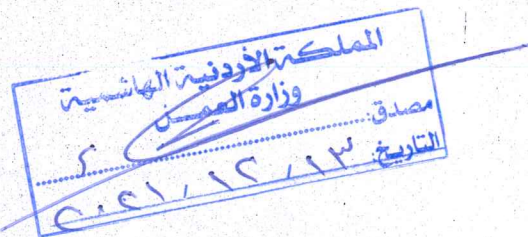 المملكة الأردنية الهاشمية
وزارة العمل
مصدق
التاريخ ٢٠٢١/١٢/١٣